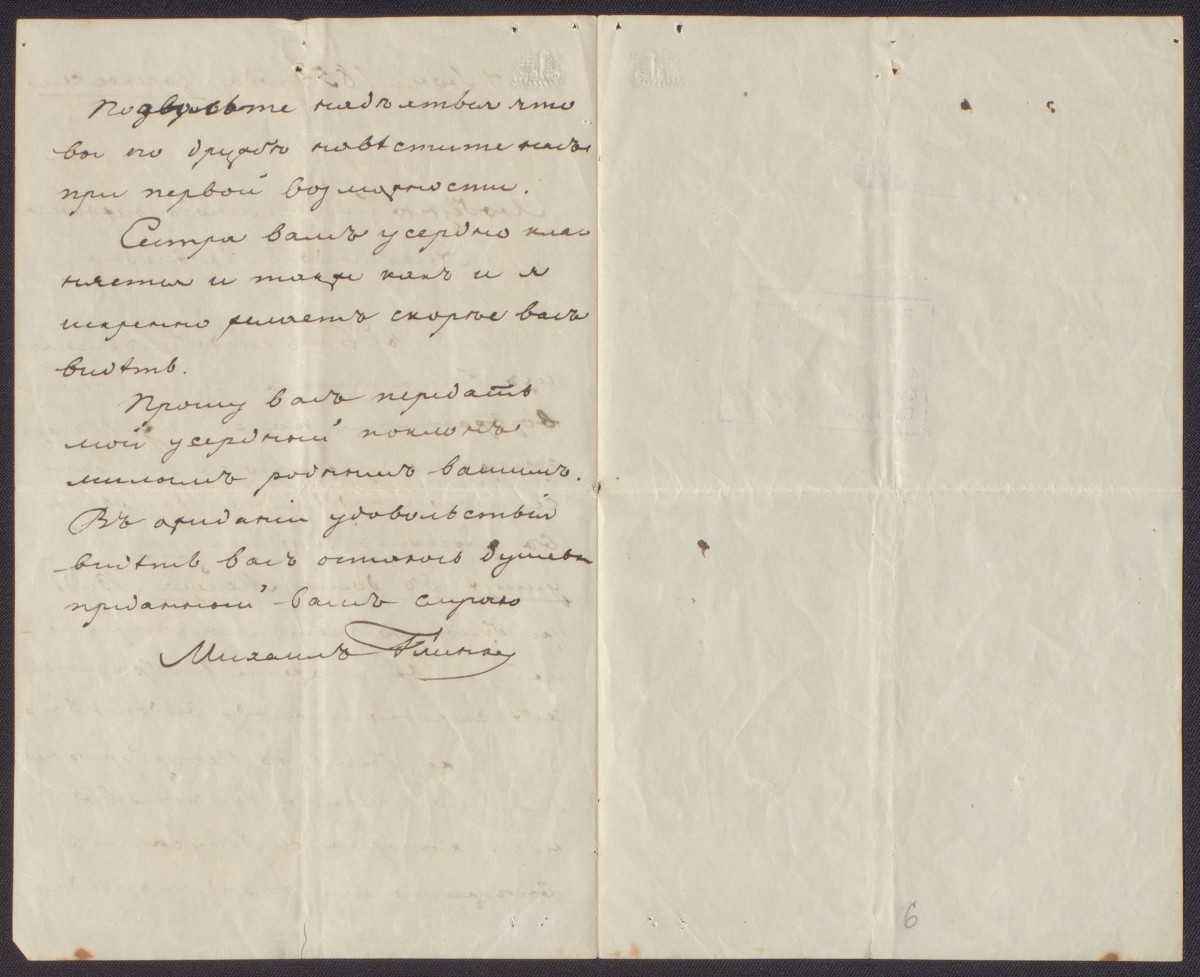 Позвольте надѣяться что
вы по дружбѣ навѣстите насъ
при первой возможности.
Сестра вамъ усердно кла-
няется и также какъ и я
искренно желаетъ скорѣе васъ
видѣть.
Прошу васъ передать
мой усердный поклонъ
милымъ роднымъ вашимъ.
Въ ожиданіи удовольствія
видѣть васъ остаюсь душевно
преданный вамъ
Михаилъ Глинка
6